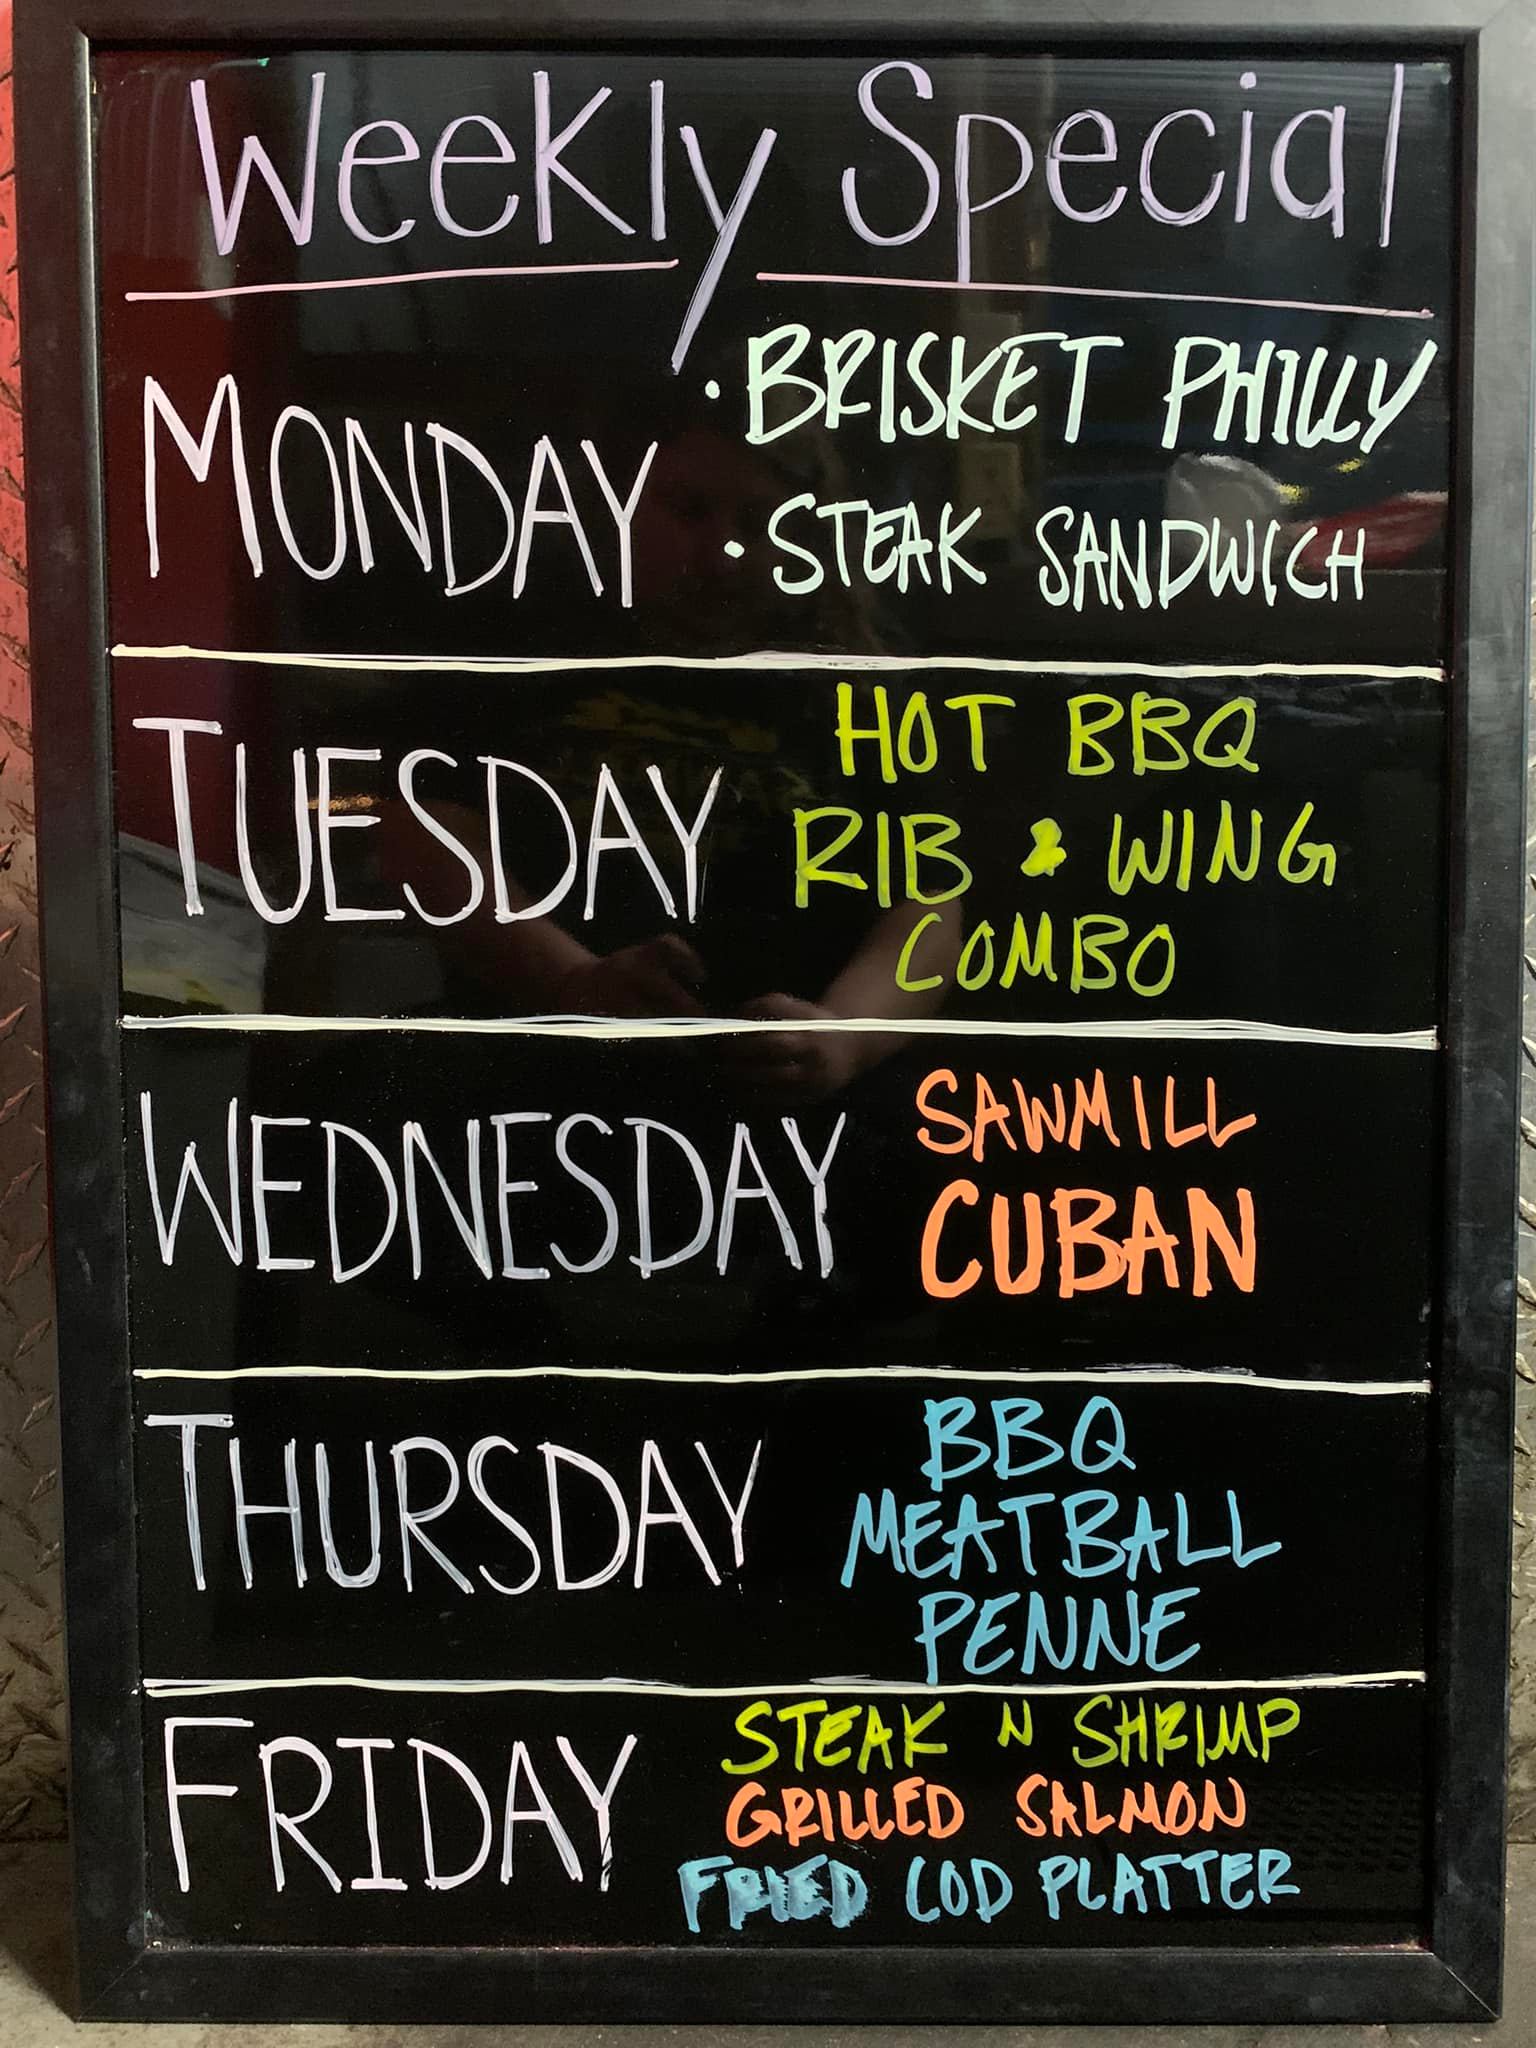 Weekly Special
MONDAY
· BRISKET PHILLY
· STEAK SANDWICH
TUESDAY
HOT BBQ
RIB & WING
COMBO
WEDNESDAY
SAWMILL
CUBAN
THURSDAY
BBQ
MEATBALL
PENNE
FRIDAY
STEAK N SHRIMP
GRILLED SALMON
FRIED COD PLATTER